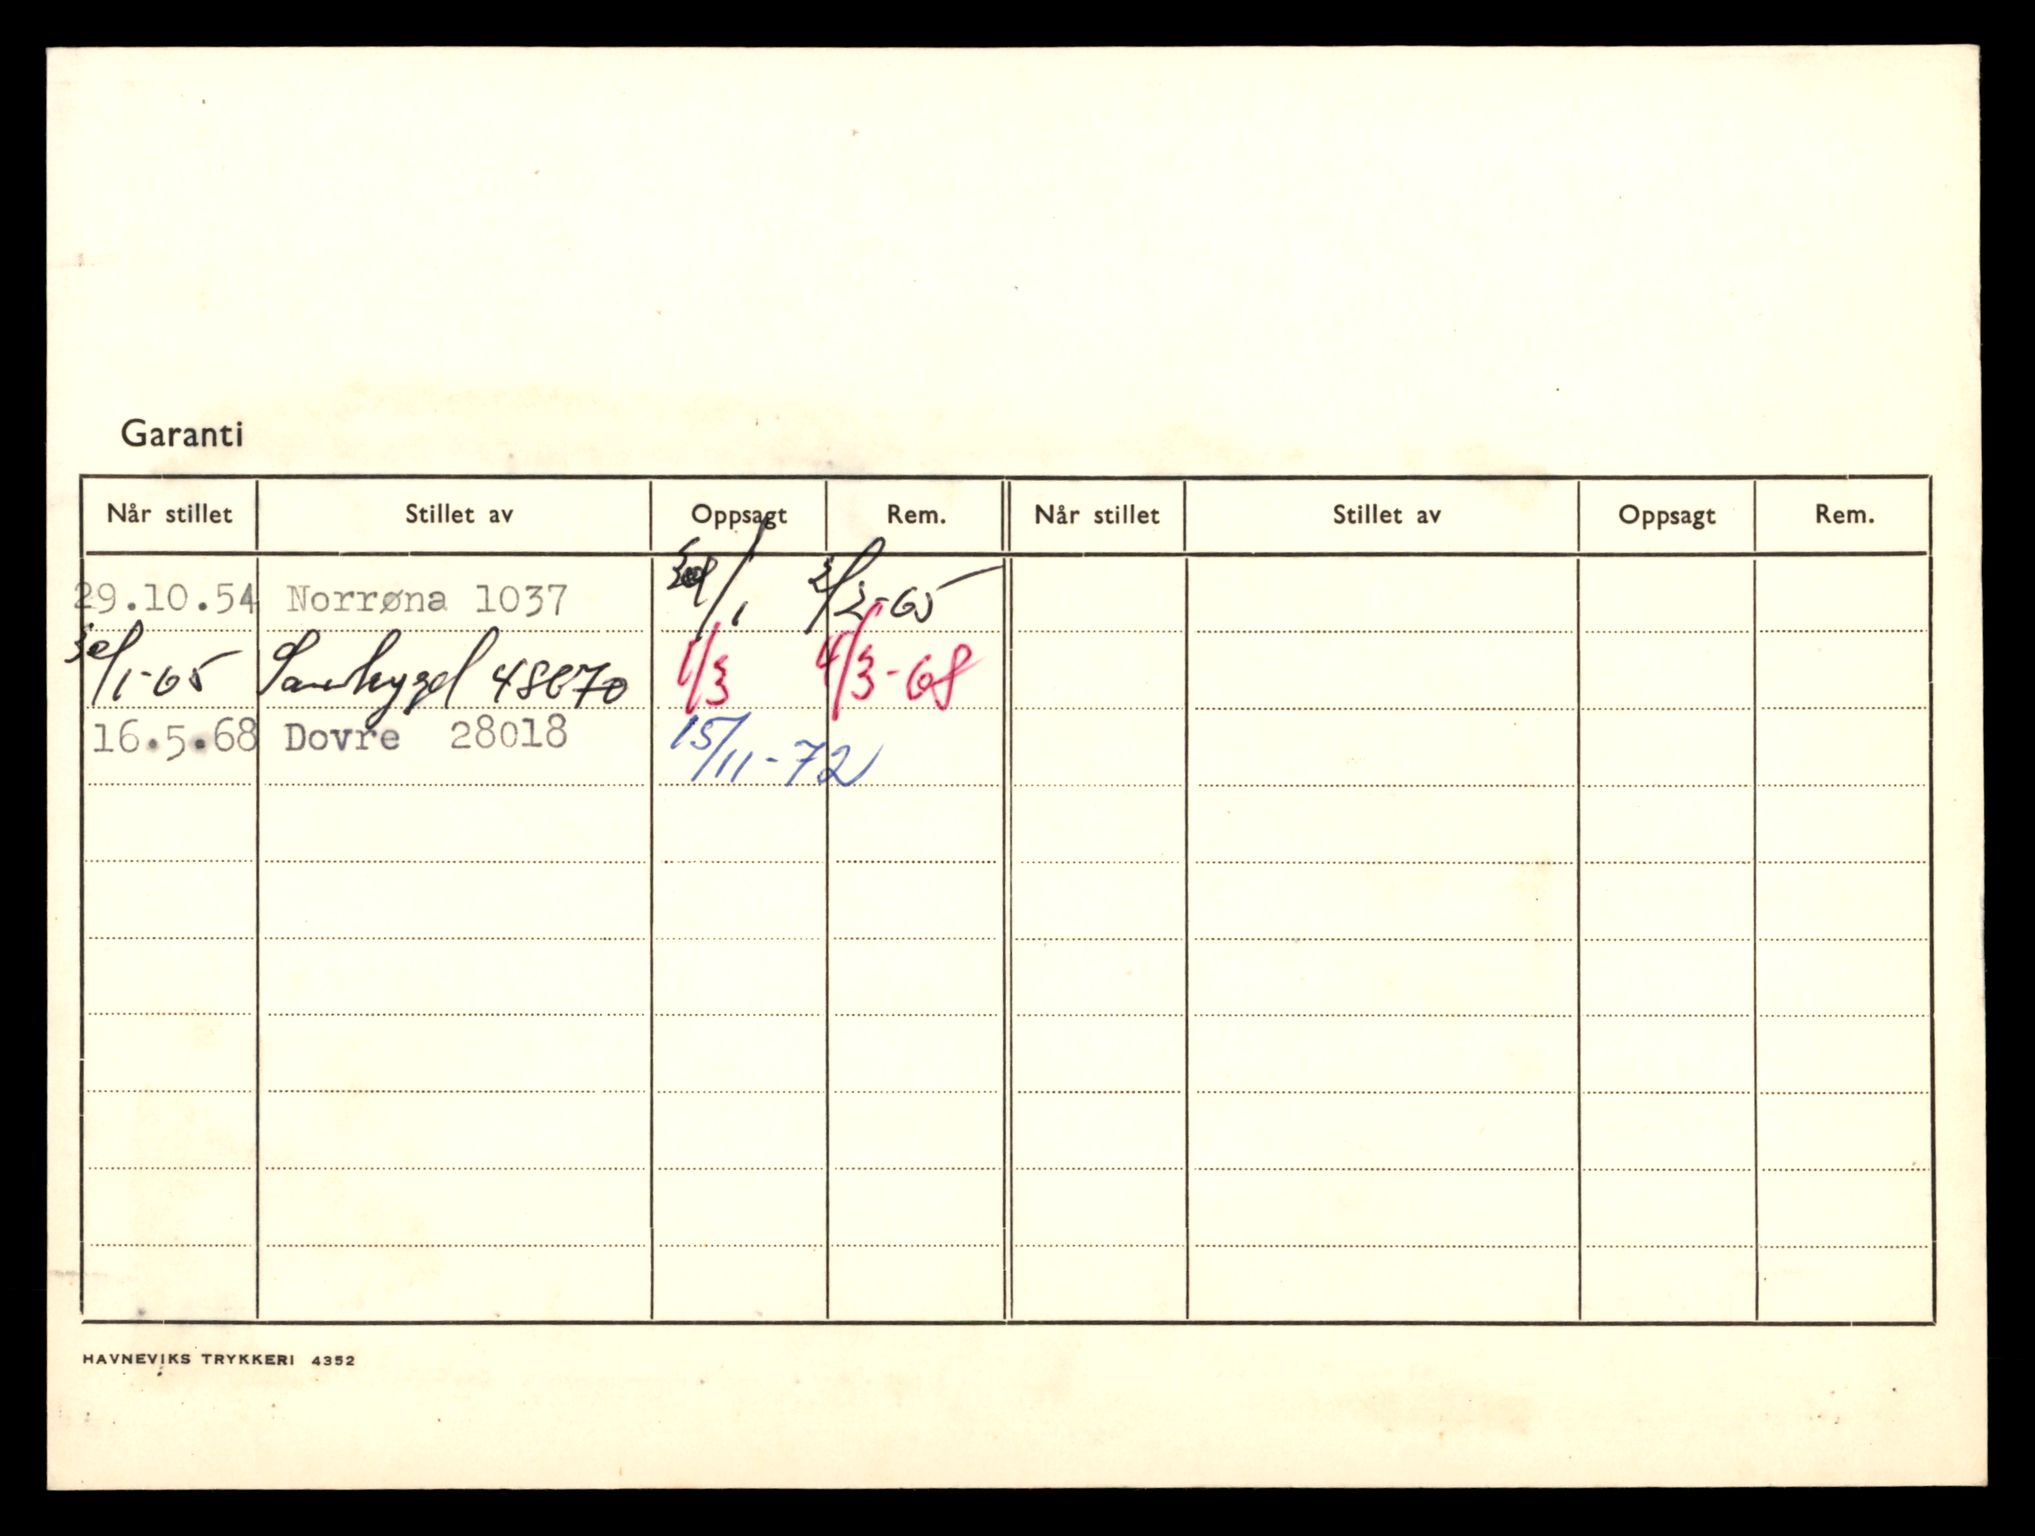 Garanti
Når stillet Stillet av Oppsagt Rem. Når stillet Stillet av Oppsagt Rem.
29.10.54 Norrøna 1037 /1 2/2-65
30/1-65 Samtrygd 48670 1/3 4/3-68
16.5.68 Dovre 28018 15/11-72
HAVNEVIKS TRYKKERI 4352